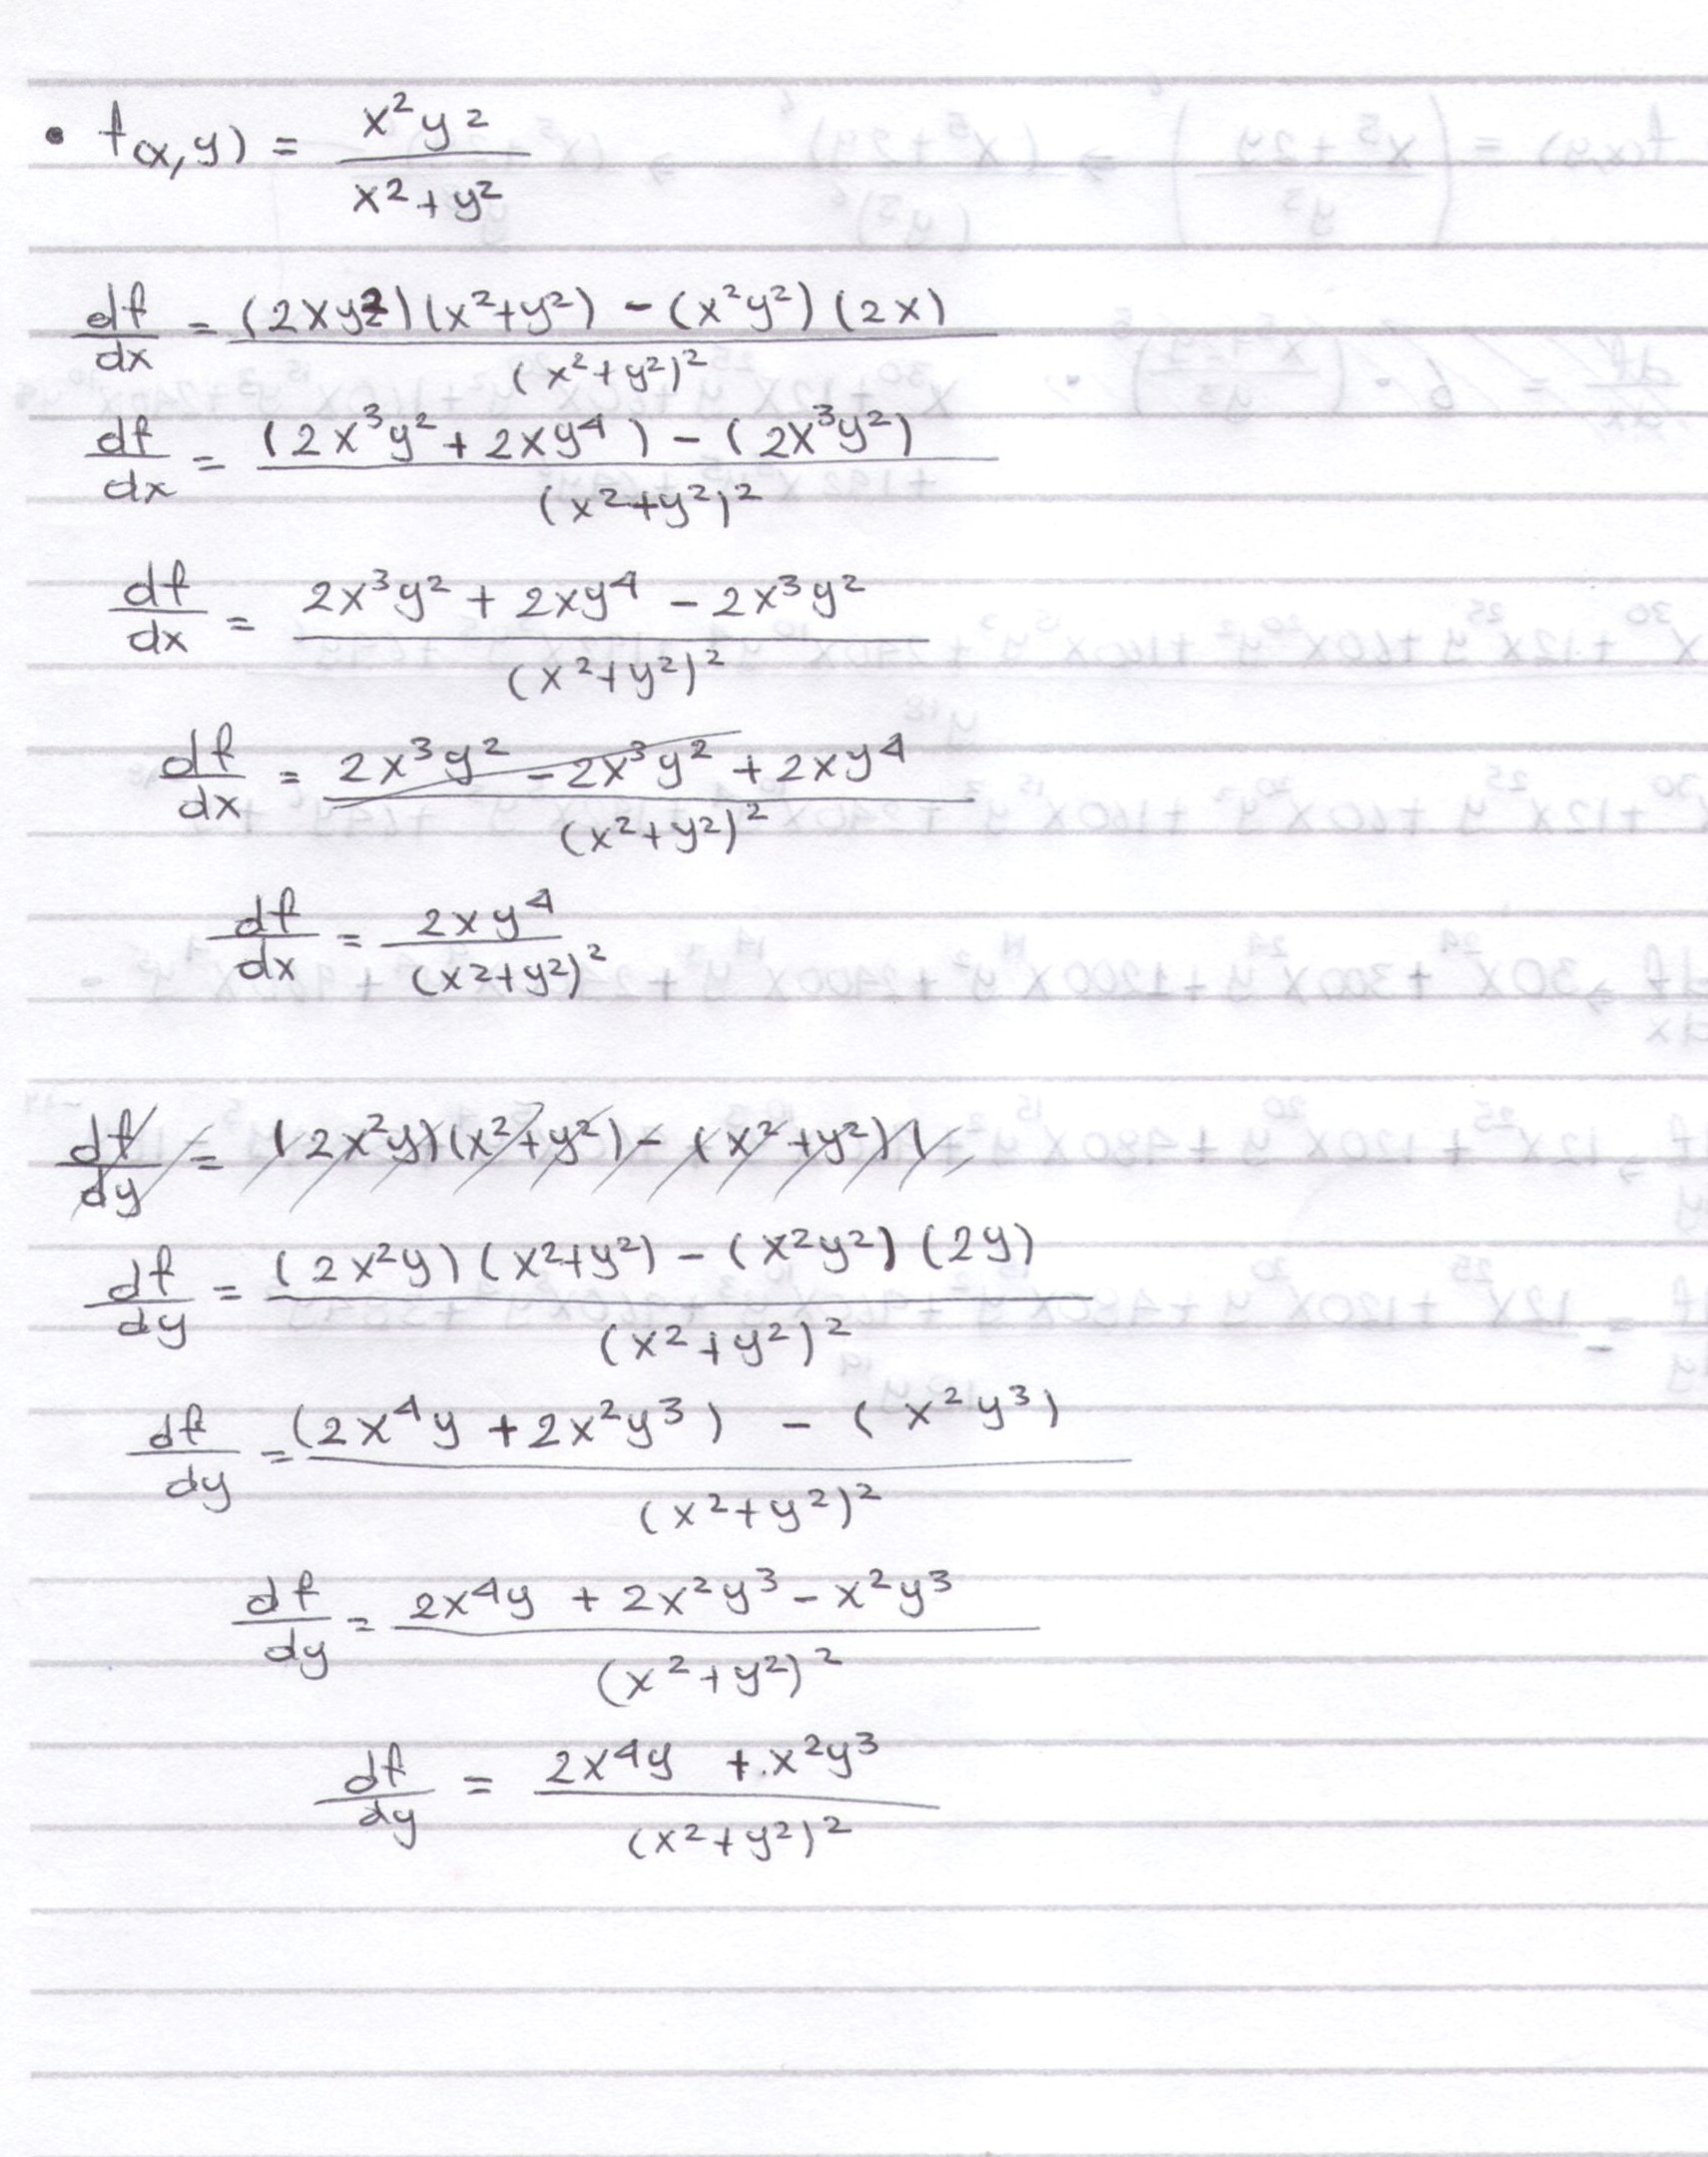 • f(x,y) = x²y² / x²+y²
df/dx = (2xy²)(x²+y²) - (x²y²)(2x) / (x²+y²)²
df/dx = (2x³y² + 2xy⁴) - (2x³y²) / (x²+y²)²
df/dx = 2x³y² + 2xy⁴ - 2x³y² / (x²+y²)²
df/dx = 2x³y² - 2x³y² + 2xy⁴ / (x²+y²)²
df/dx = 2xy⁴ / (x²+y²)²
df/dy = (2x²y)(x²+y²) - (x²+y²)(
df/dy = (2x²y)(x²+y²) - (x²y²)(2y) / (x²+y²)²
df/dy = (2x⁴y + 2x²y³) - (x²y³) / (x²+y²)²
df/dy = 2x⁴y + 2x²y³ - x²y³ / (x²+y²)²
df/dy = 2x⁴y + x²y³ / (x²+y²)²